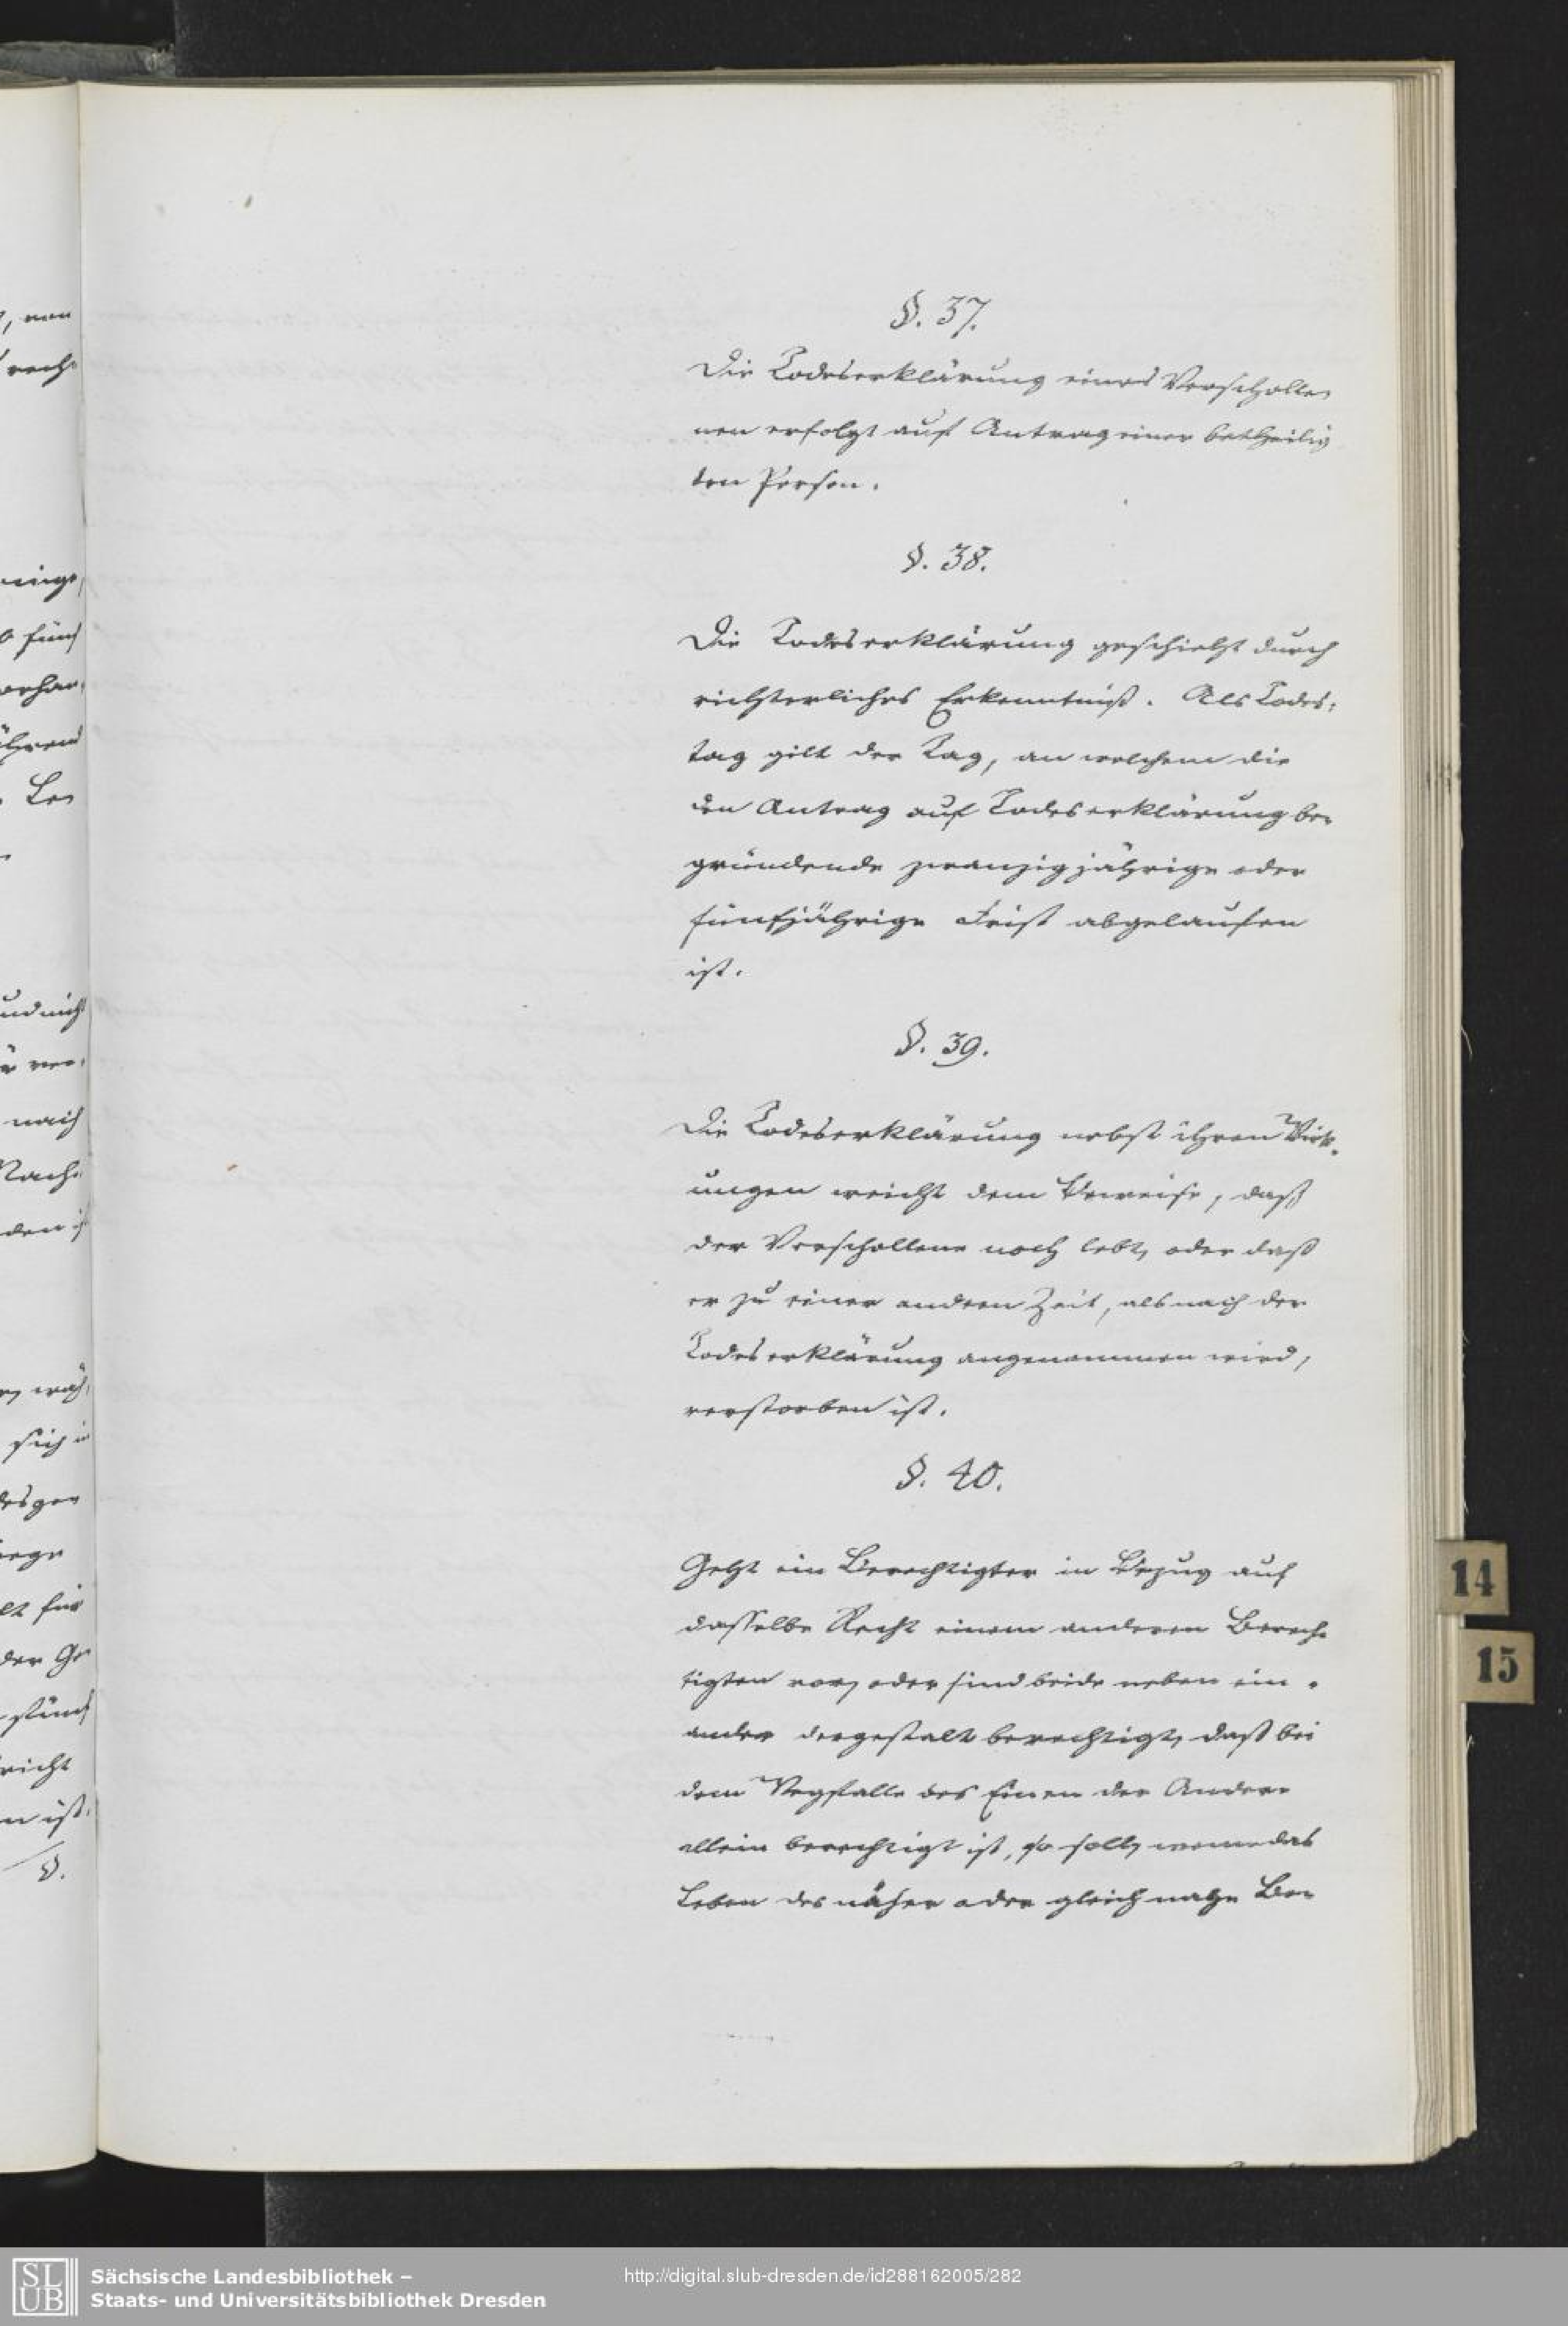 §. 37.
Die Todeserklärung eines Verscholle-
nen erfolgt auf Antrag einer betheilig-
ten Person.
§. 38.
Die Todeserklärung geschieht durch
richterliches Erkenntniß. Als Todes-
tag gilt der Tag, an welchem die
den Antrag auf Todeserklärung be-
gründende zwanzigjährige oder
fünfjährige Frist abgelaufen
ist.
§. 39.
Die Todeserklärung nebst ihren Wirk-
ungen weicht dem Beweise, daß
der Verschollene noch lebt, oder daß
er zu einer andren Zeit, als nach der
Todeserklärung angenommen wird,
verstorben ist.
§. 40.
Geht ein Berechtigter in Bezug auf
dasselbe Recht einem anderen Berech-
tigten vor, oder sind beide neben ein-
ander dergestalt berechtigt, daß bei
dem Wegfalle des Einen der Andere
allein berechtigt ist, so soll, wenn das
Leben des näher oder gleich nahe Be-
14
15
SLUB
Sächsische Landesbibliothek –
Staats- und Universitätsbibliothek Dresden
http://digital.slub-dresden.de/id288162005/282